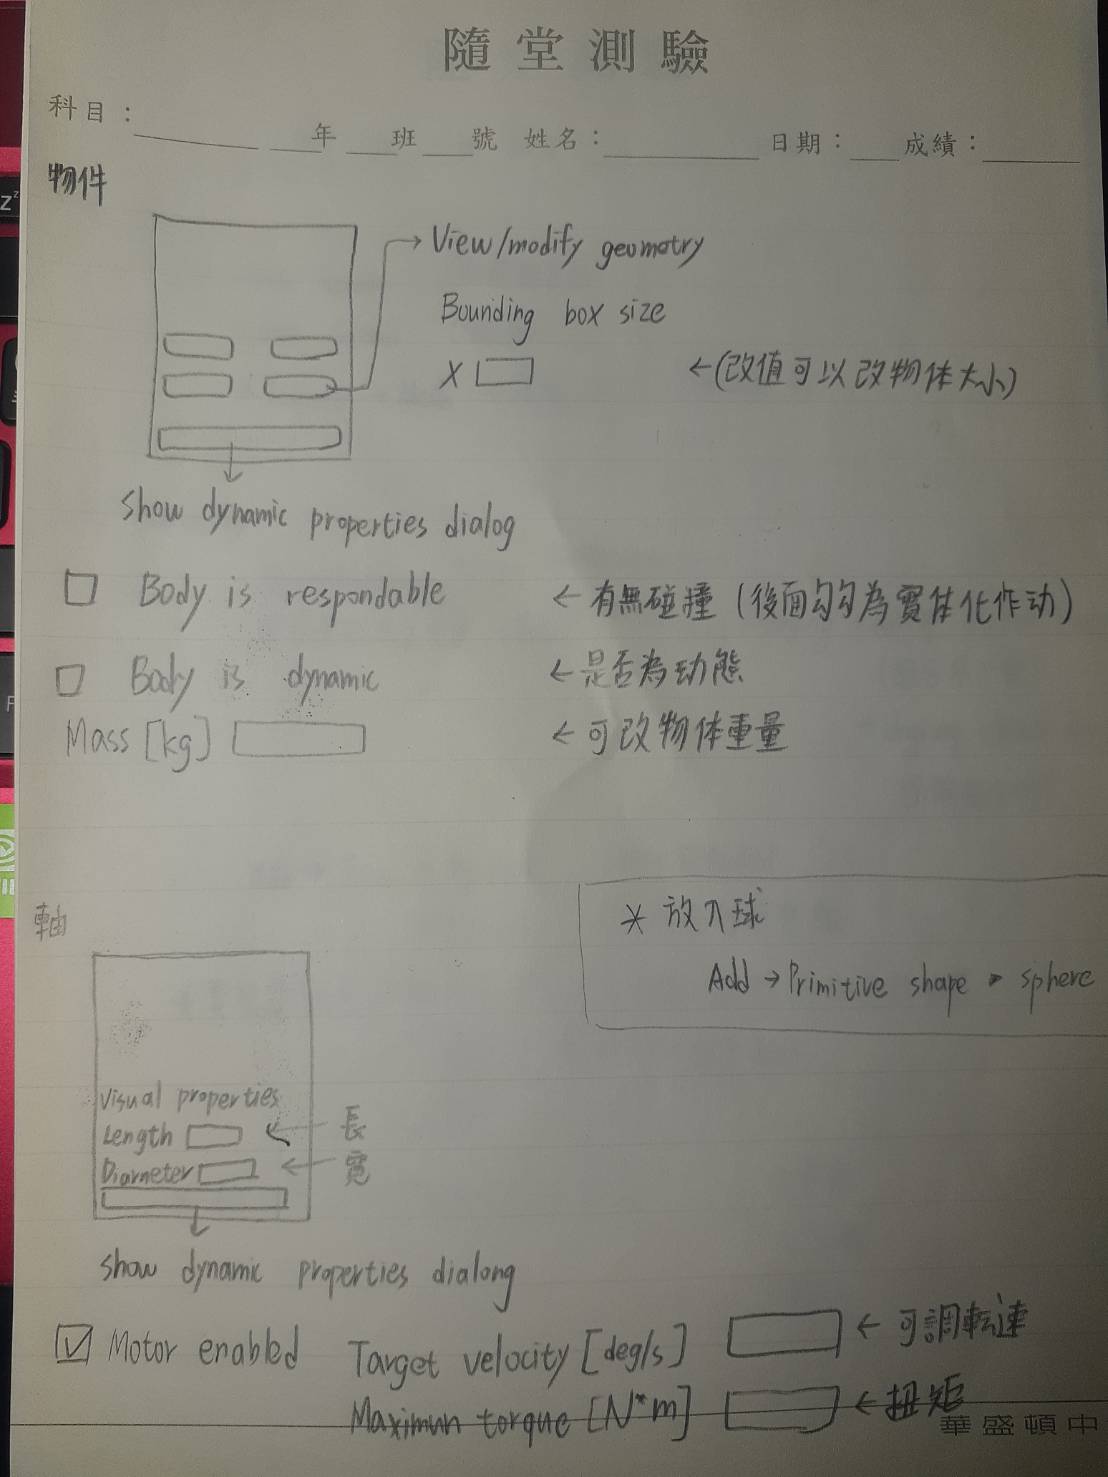 隨堂測驗
科目： 年 班 號 姓名： 日期： 成績：
物件
View/modify geometry
Bounding box size
X ←(改值可以改物体大小)
show dynamic properties dialog
Body is respondable ←有無碰撞(後面勾勾為實体化作动)
Body is dynamic ←是否為动態
Mass [kg] ←可改物体重量
* 放入球
Add → Primitive shape → sphere
軸
Visual properties
Length ← 長
Diarneter ← 寬
show dynamic properties dialong
Motor enabled Target velocity [deg/s] ←可調転速
Maximun torque [N*m] ←扭矩
華盛頓中